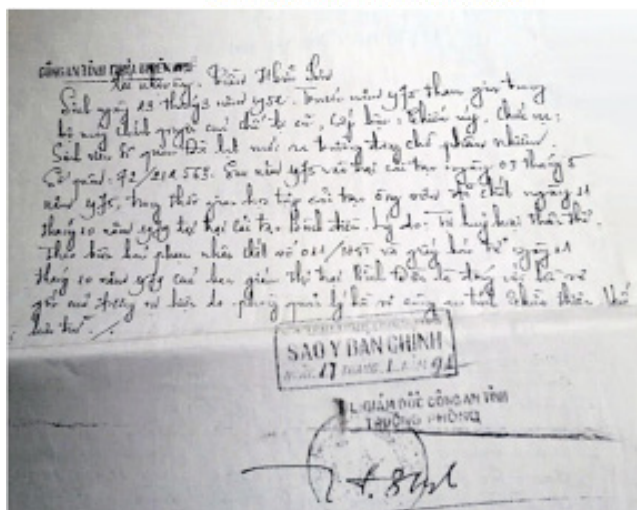 CÔNG AN TỈNH THỪA THIÊN HUẾ
Trần
Sinh ngày 23 tháng 3 năm 1952. Trước năm 1975 tham gia trong
bộ máy chính quyền của chế độ cũ, Cấp bậc: Thiếu úy, Chức vụ:
Sinh viên Sĩ quan Đà Lạt mới ra trường đang chờ
Số quân: 72/ Sau năm 1975 vào trại cải tạo ngày 03 tháng 5
năm 1975, trong thời gian học tập cải tạo ông đã chết ngày 21
tháng 10 năm 1979 tại trại cải tạo Bình Điền. Lý do: Tự huỷ hoại thân thể.
Theo biên bản phạm nhân chết số và giấy báo tử ngày 21
tháng 10 năm 1979 của ban giám thị trại Bình Điền là đúng với hồ sơ
gốc do phòng quản lý hồ sơ công an tỉnh Thừa Thiên Huế
lưu trữ./
SAO Y BẢN CHÍNH
NGÀY 17 THÁNG 1 NĂM 94
TL. GIÁM ĐỐC CÔNG AN TỈNH
TRƯỞNG PHÒNG